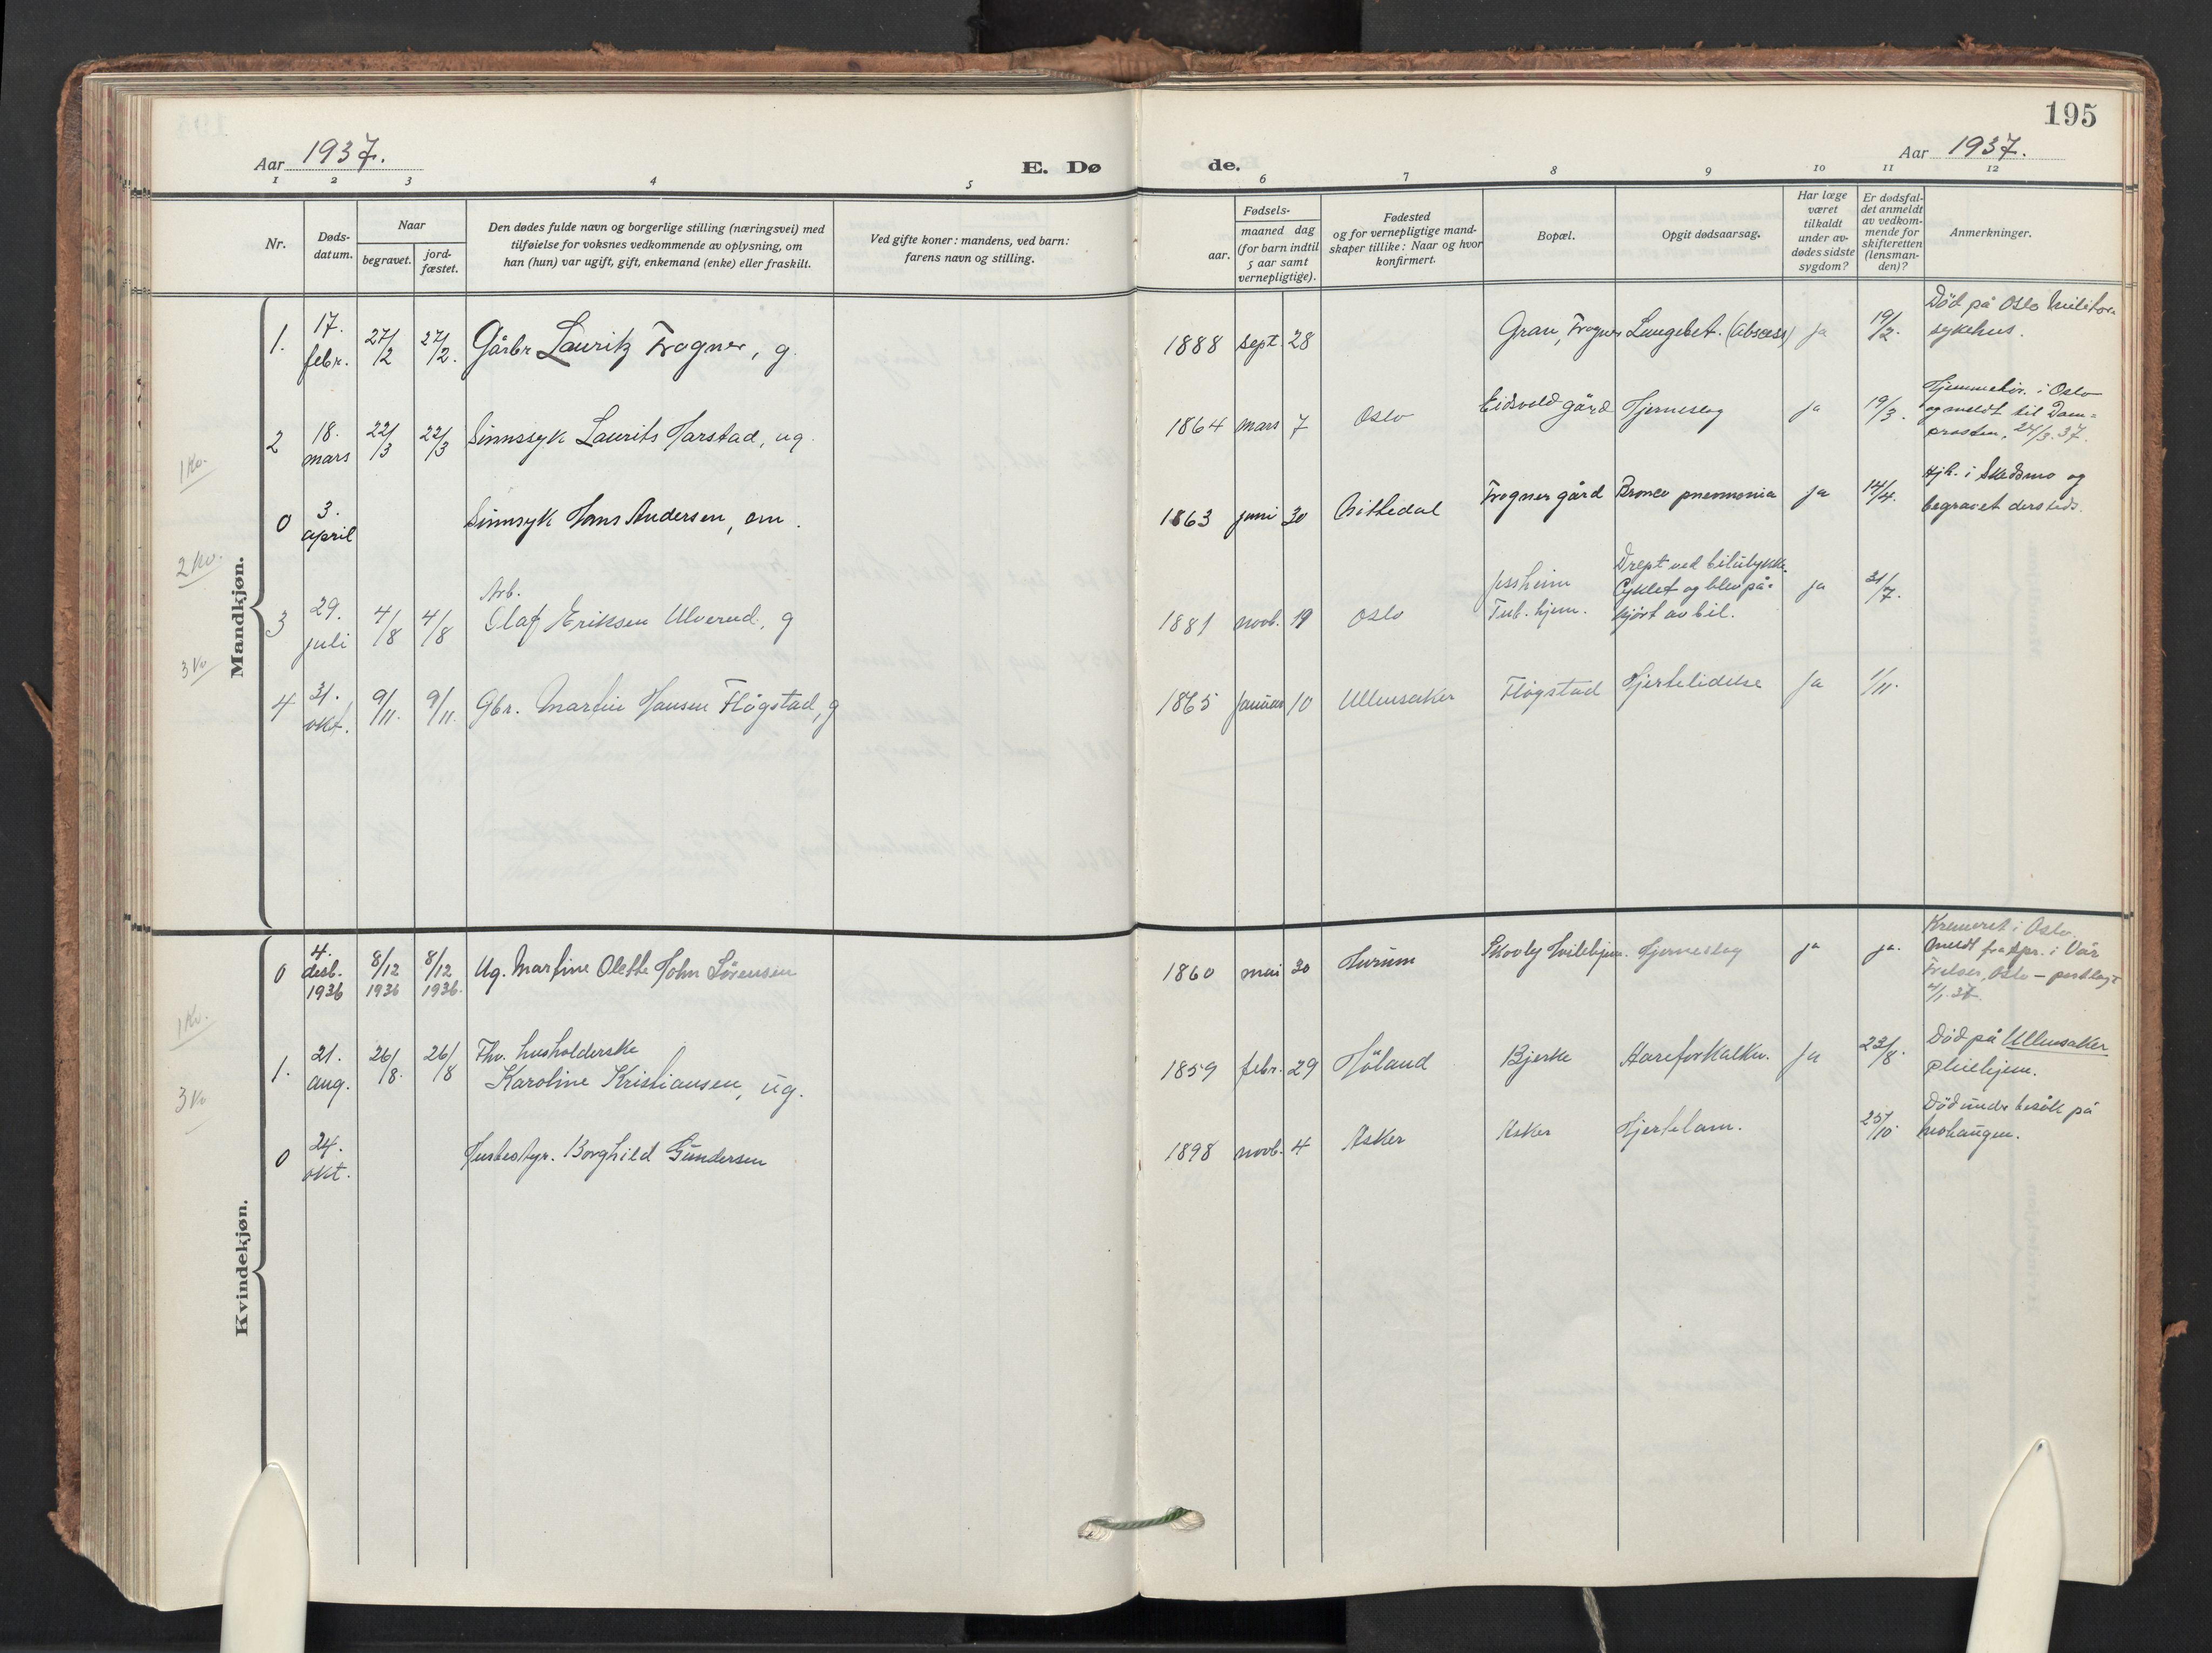 195
Aar 1937.
E. Dø
de.
Aar 1937.
1 2 3 4 5 6 7 8 9 10 11 12
Nr.
Døds-
datum.
Naar
begravet.
jord-
fæstet.
Den dødes fulde navn og borgerlige stilling (næringsvei) med
tilføielse for voksnes vedkommende av oplysning, om
han (hun) var ugift, gift, enkemand (enke) eller fraskilt.
Ved gifte koner: mandens, ved barn:
farens navn og stilling.
Fødsels-
aar.
maaned dag
(for barn indtil
5 aar samt
vernepligtige).
Fødested
og for vernepligtige mand-
skaper tillike: Naar og hvor
konfirmert.
Bopæl.
Opgit dødsaarsag.
Har læge
været
tilkaldt
under av-
dødes sidste
sygdom?
Er dødsfal-
det anmeldt
av vedkom-
mende for
skifteretten
(lensman-
den)?
Anmerkninger.
Mandkjøn.
1. 17. febr. 27/2 27/2. Gårbr Lauritz Frogner, g. 1888 sept. 28 Gran, Frogner Lungebet. (Absess) ja 19/2. Død på Oslo militære
sykehus.
1 Kv.
2 18. mars 22/3 22/3 Sinnssyk Laurits Harstad, ug. 1864 mars 7 Oslo Eidsvold gård Hjerneslag ja 19/3. Hjemmehør. i Oslo
og meldt til Dom=
prosten, 24/3.37.
0 3. april Sinnsyk Hans Andersen, em. 1863 juni 30 Nittedal Frogner gård Bronco pneumonia ja 14/4. Hjh. i Skedsmo og
begravet dersteds.
2 Kv.
3 29. juli 4/8 4/8 Arb.
Olaf Eriksen Ulverud, g 1881 novb. 19 Oslo Jessheim
Tub. hjem. Drept ved bilulykke.
Cyklet og blev på-
kjørt av bil. ja 31/7.
3 Kv
4 31. okt. 9/11. 9/11. Gbr. Martin Hansen Fløgstad, g 1865 januar 10 Ullensaker Fløgstad Hjertelidelse Ja 1/11.
Kvindekjøn.
0 4. desb. 1936 8/12 1936 8/12 1936. Ug. Martine Olette John Sørensen 1860 mai 30 Hurum Skovly Hvilehjem. Hjerneslag ja ja. Kremeret i Oslo.
Meldt fra spr. i Vår
Frelser, Oslo —
4/1.37.
1 Kv.
1. 21. aug. 26/8. 26/8 Fhv. husholderske
Karoline Kristiansen, ug. 1859 febr. 29 Høland Bjerke Aareforkalkn. Ja 23/8. Død på Ullensaker
pleiehjem.
3 Kv
0 24. okt. Husbestyr. Borghild Gundersen 1898 novb. 4 Asker Asker Hjertelam. 25/10. Død under besøk på
Mohaugen.